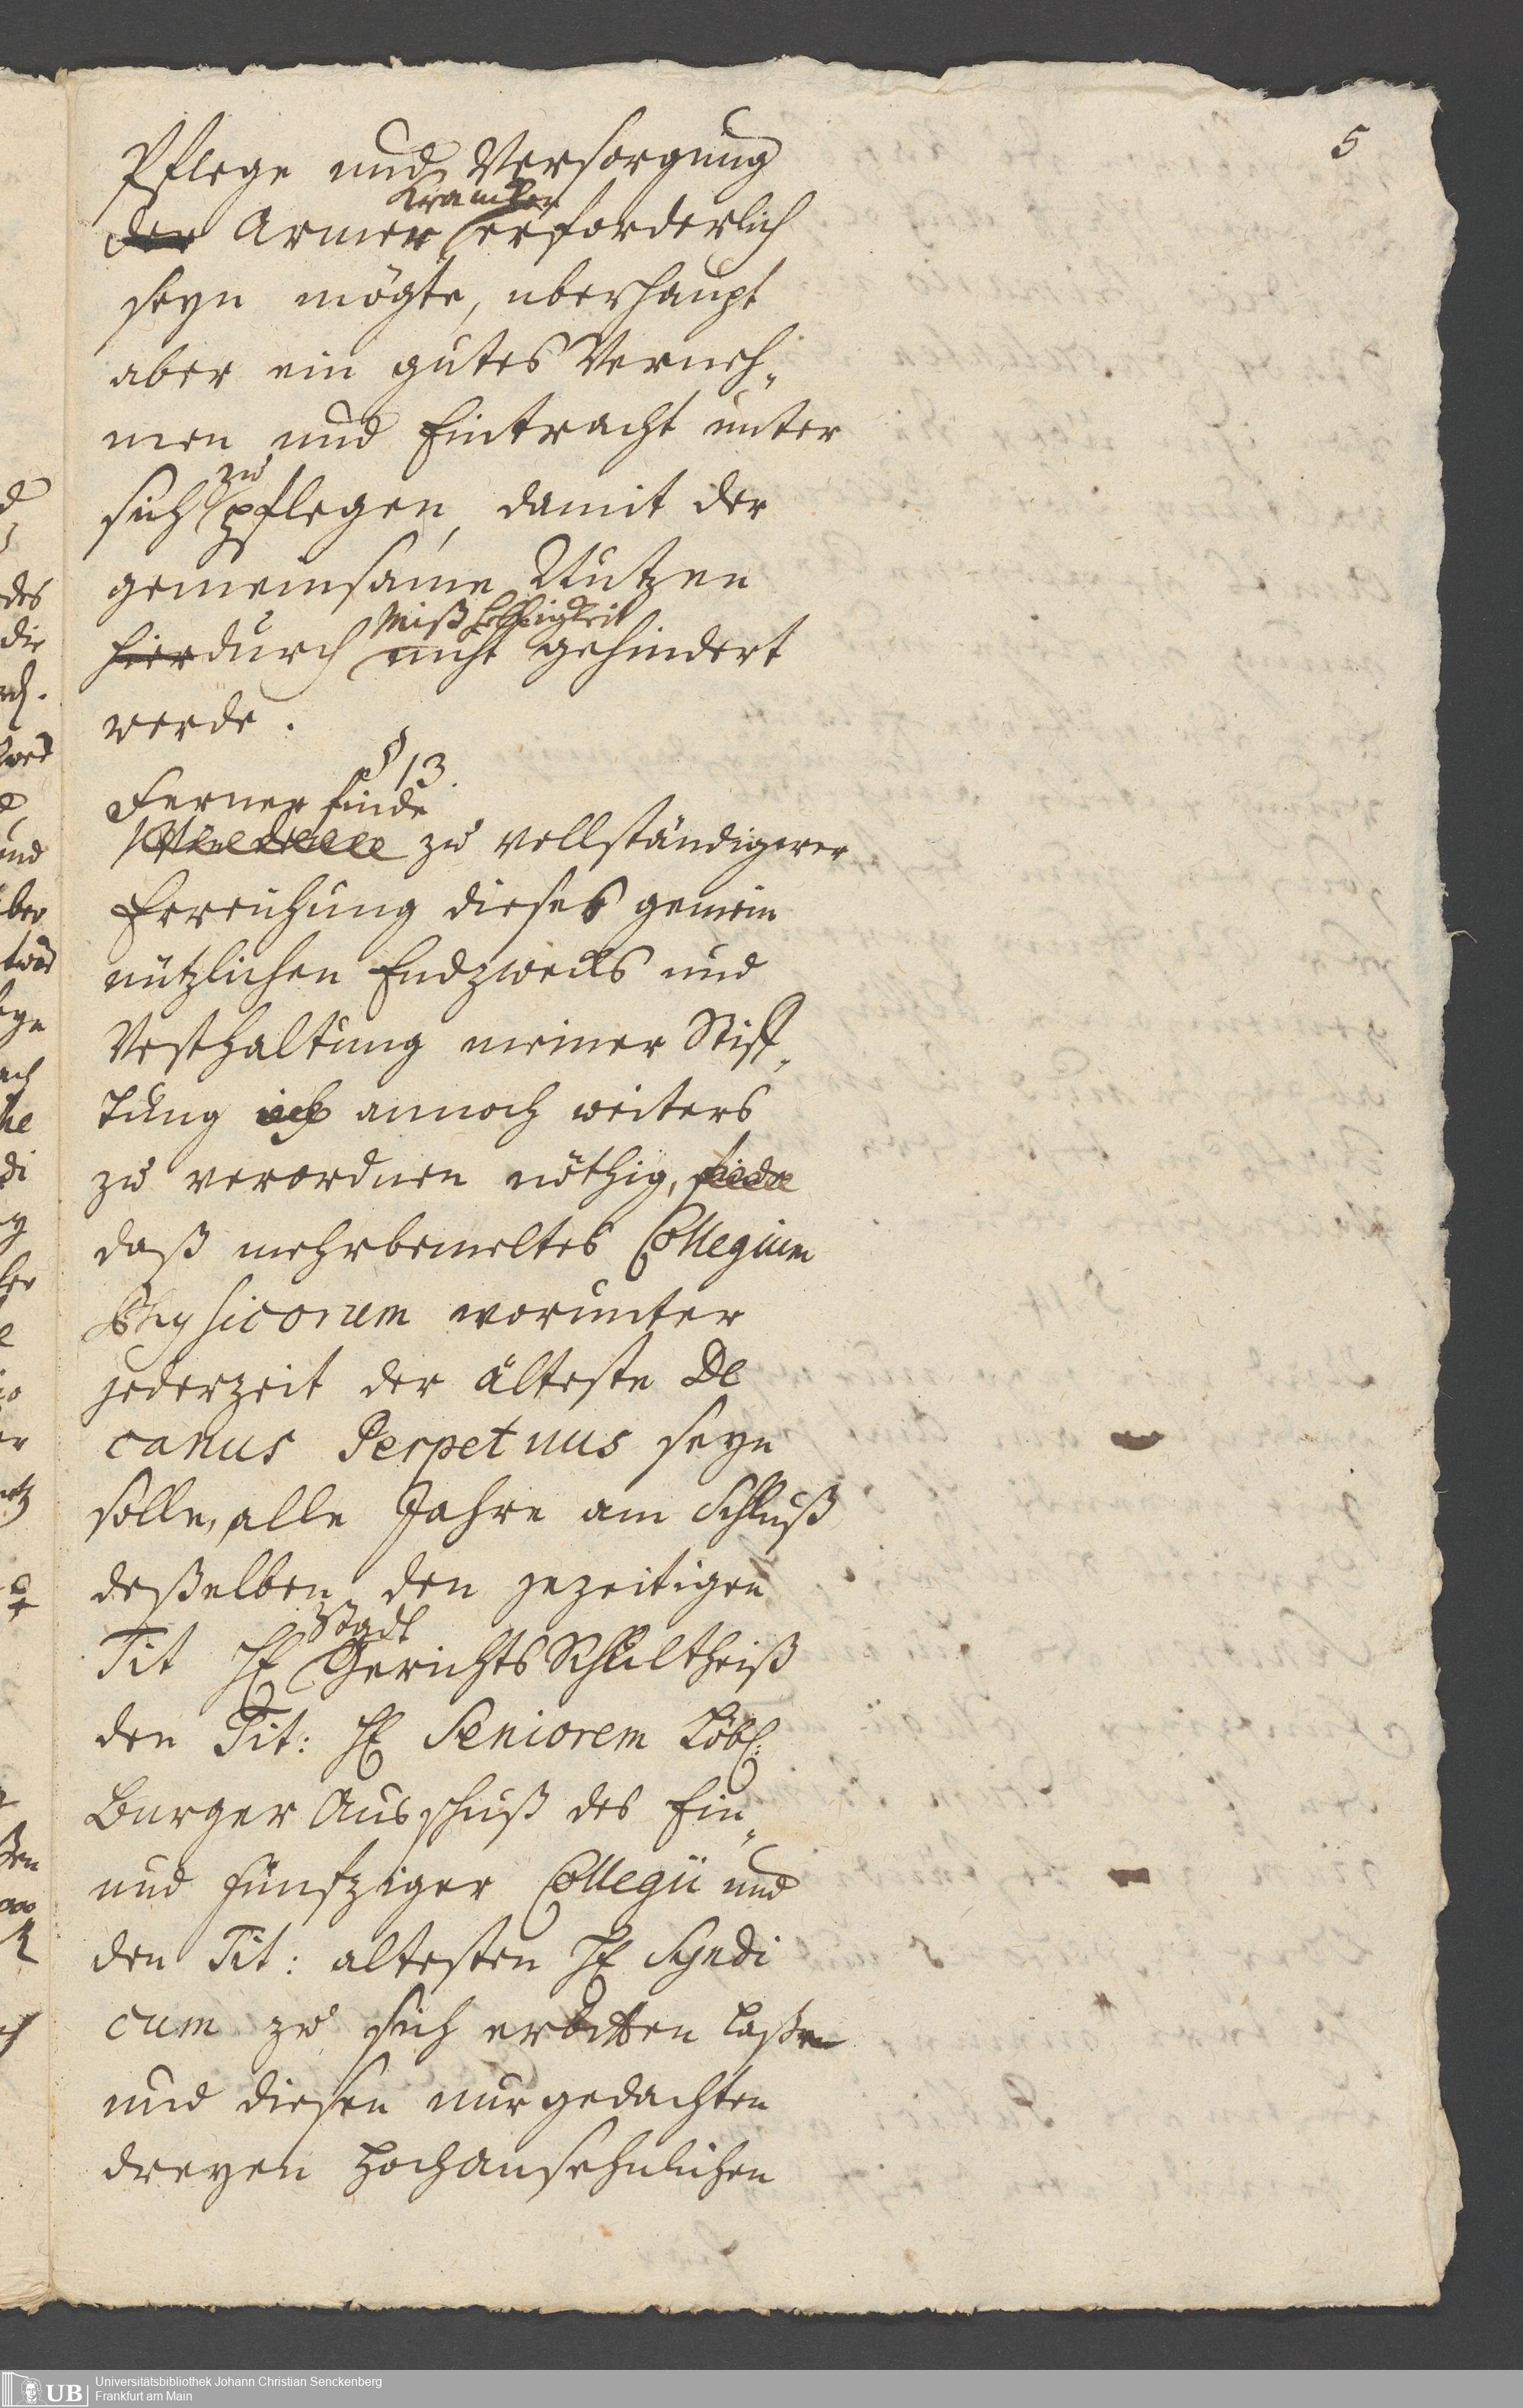 5
Pflege und Versorgung
der Armer Krancken erforderlich
seyn mögte, uberhaupt
aber ein gutes Verneh-
men und Eintracht unter
sich zu pflegen, damit der
gemeinsame Nutzen
hierdurch Mißhelligkeit nicht gehindert
werde.
§ 13.
Ferner finde
zu vollständigerer
Erreichung dieses gemein
nützlichen Endzwecks und
Vesthaltung meiner Stiff-
tung ich annoch weiters
zu verordnen nöthig, finde
daß mehrbemeltes Collegium
Physicorum worunter
jederzeit der älteste De
canus Perpetuus seyn
solle, alle Jahre am Schluß
deßelben den jezeitigen
Tit H Stadt Gerichts Schultheiß
den Tit: H Seniorem Löbl:
Burger Ausschuß des Ein-
und Funfziger Collegii und
den Tit: altesten H Syndi
cum zu sich erbitten laßen
und diesen nurgedachten
dreyen Hochansehnlichen
UB
Universitätsbibliothek Johann Christian Senckenberg
Frankfurt am Main